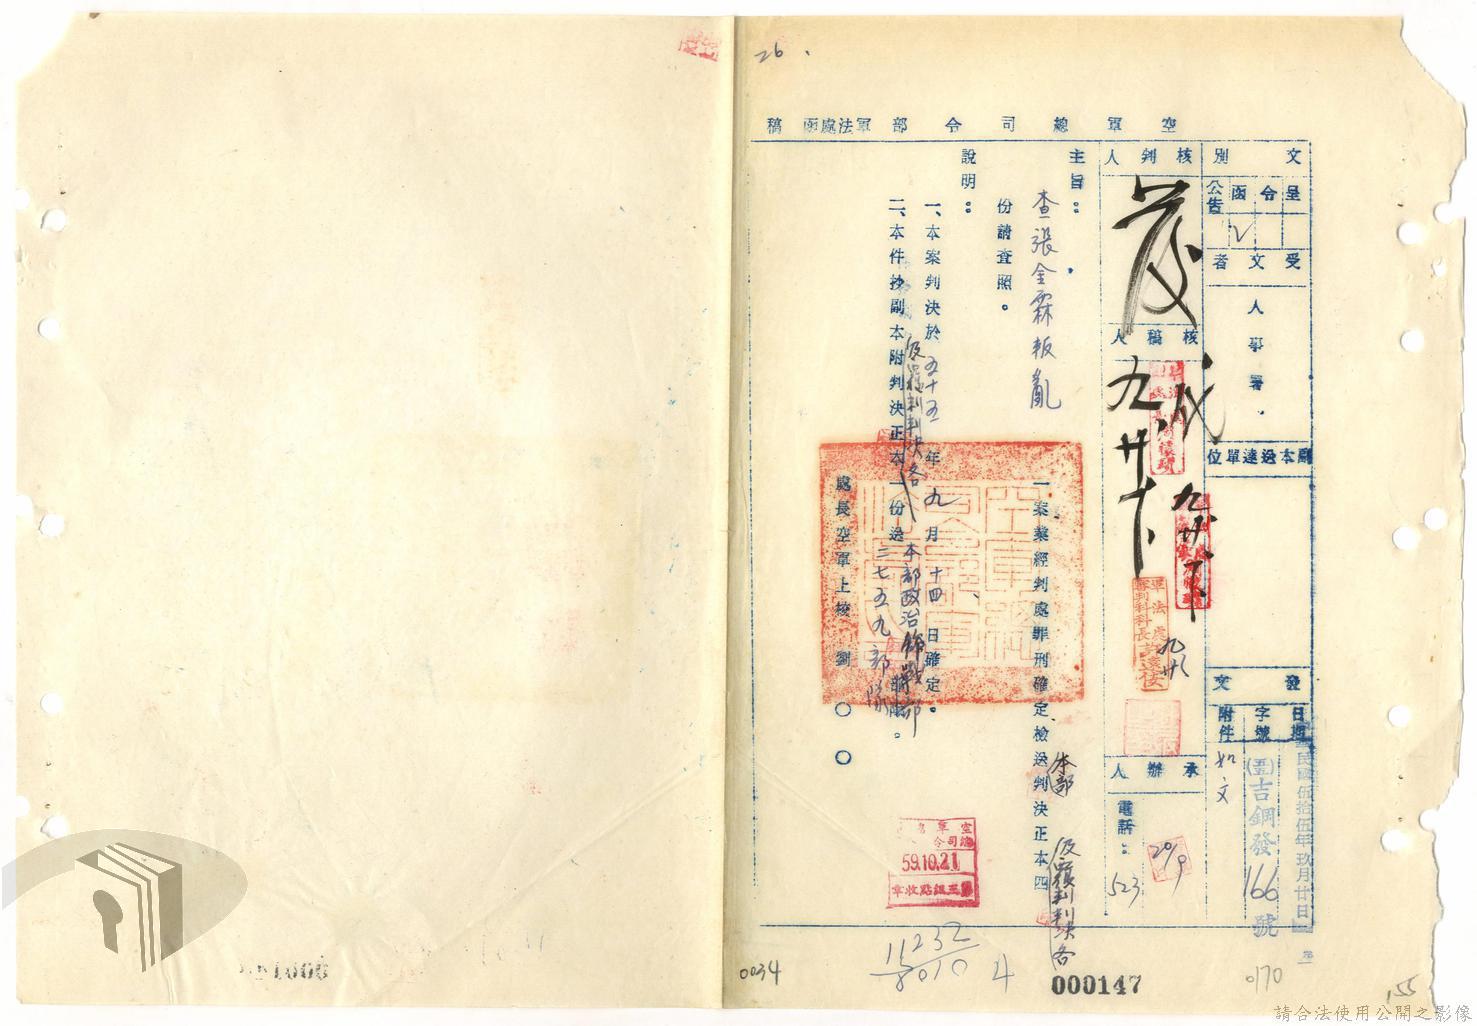 26
空軍總司令部軍法處函稿
文別
呈
令
函
公告
ˇ
受文者
人事署
副本送達單位
發文
日期
中華民國伍拾伍年玖月廿日
字號
吉鋼發166號
附件
如文
核判人
核稿人
九、廿下
九、廿下
軍法處審判科科長
九廿
承辦人
20/9
電話：
523
主旨：
查張金霖叛亂一案業經判處罪刑確定檢送判決正本四
本部
及覆判判決各
份請查照。
說明：
一、本案判決於五十五年九月十四日確定。
二、本件抄副本附判決正本一份送
及覆判判決各
本部政治作戰部
三七五九部隊
處長空軍上校劉○○
空軍總司令
59.10.21
11232
8010
4
0034
000147
0170
155
請合法使用公開之影像